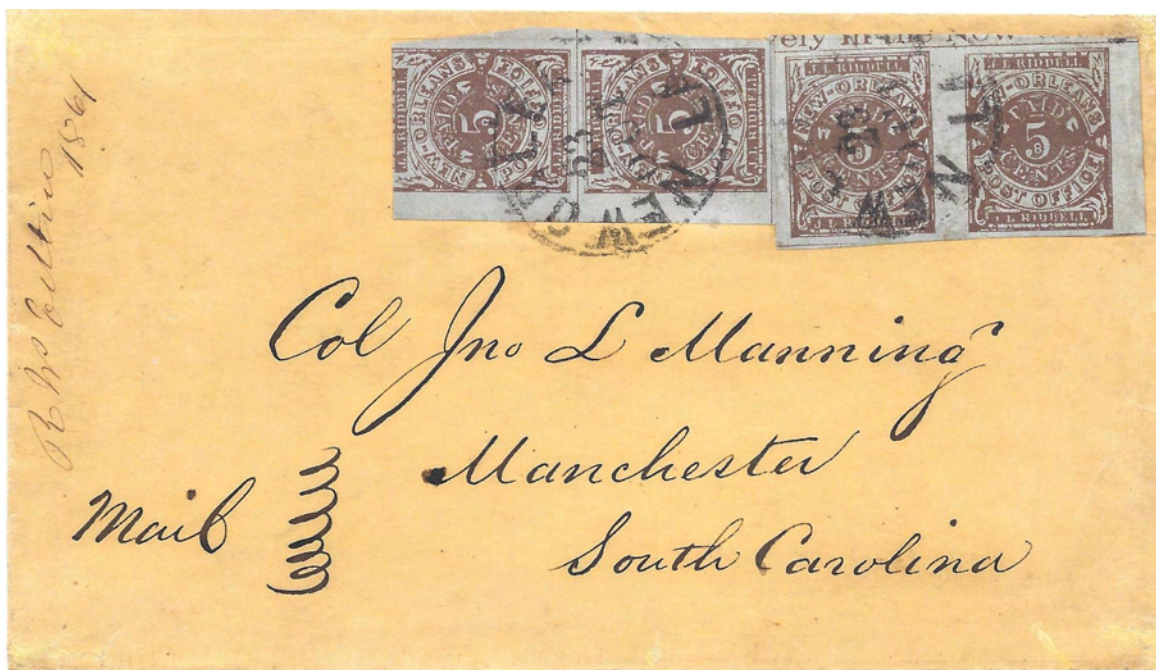 1861
very in the New
J.L. RIDDELL.
NEW-ORLEANS
PAID
5
CENTS
POST OFFICE
J.L. RIDDELL.
J.L. RIDDELL.
NEW-ORLEANS
PAID
5
CENTS
POST OFFICE
J.L. RIDDELL.
J.L. RIDDELL.
NEW-ORLEANS
PAID
5
CENTS
POST OFFICE
J.L. RIDDELL.
J.L. RIDDELL.
NEW-ORLEANS
PAID
5
CENTS
POST OFFICE
J.L. RIDDELL.
NEW ORLEANS LA
Col Jno L Manning
Manchester
South Carolina
Mail